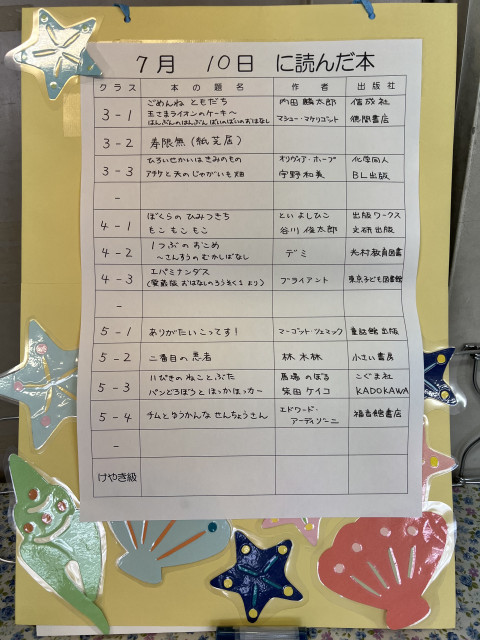 7月 10日 に読んだ本
クラス 本の題名 作者 出版社
3-1 ごめんね ともだち 内田 麟太郎 偕成社
王さまライオンのケーキ〜 マシュー・マケリゴット 徳間書店
はんぶんのはんぶん ばいのばいのおはなし
3-2 寿限無(紙芝居)
3-3 ひろいせかいはきみのもの オリヴィア・ホープ 化学同人
アチケと天のじゃがいも畑 宇野 和美 BL出版
-
4-1 ぼくらの ひみつきち とい よしひこ 出版ワークス
もこ もこ もこ 谷川 俊太郎 文研出版
4-2 1つぶの おこめ デミ 光村教育図書
〜さんすうの むかしばなし
4-3 エパミナンダス ブライアント 東京子ども図書館
(愛蔵版 おはなしのろうそく1 より)
-
5-1 ありがたいこってす! マーゴット・ツェマック 童話館 出版
5-2 二番目の悪者 林 木林 小さい書房
5-3 11ぴきのねことぶた 馬場 のぼる こぐま社
パンどろぼうと ほっかほっカー 柴田 ケイコ KADOKAWA
5-4 チムとゆうかんな せんちょうさん エドワード・ 福音館書店
アーディゾーニ
-
けやき級